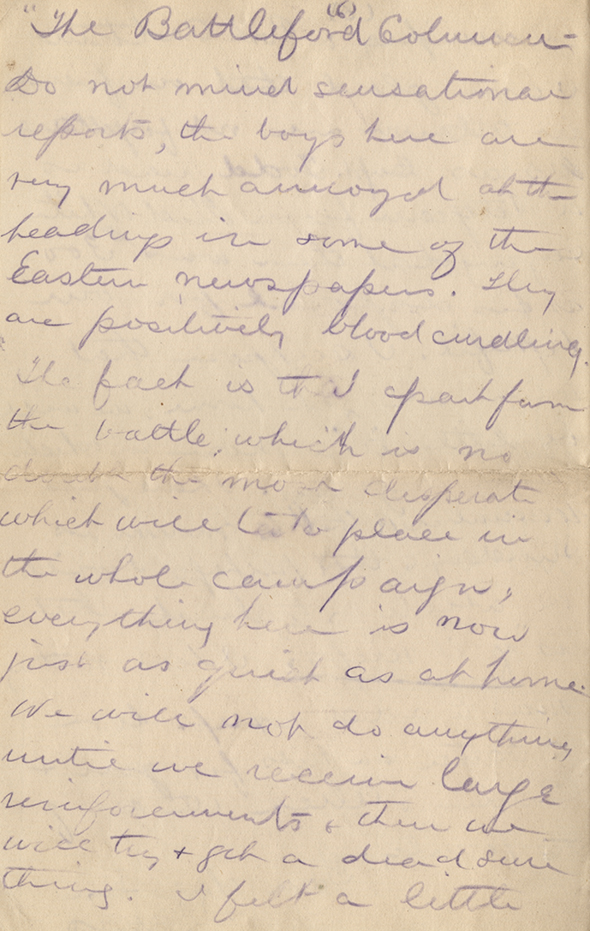 (6)
"The Battleford Column"
Do not mind sensational
reports, the boys here are
very much annoyed at the
headings in some of the
Eastern newspapers. They
are positively bloodcurdling.
The fact is that apart from
the battle, which is no
doubt the most desperate
which will take place in
the whole campaign,
everything here is now
just as quiet as at home.
We will not do anything
until we receive large
reinforcements & then we
will try & get a dead sure
thing. I felt a little